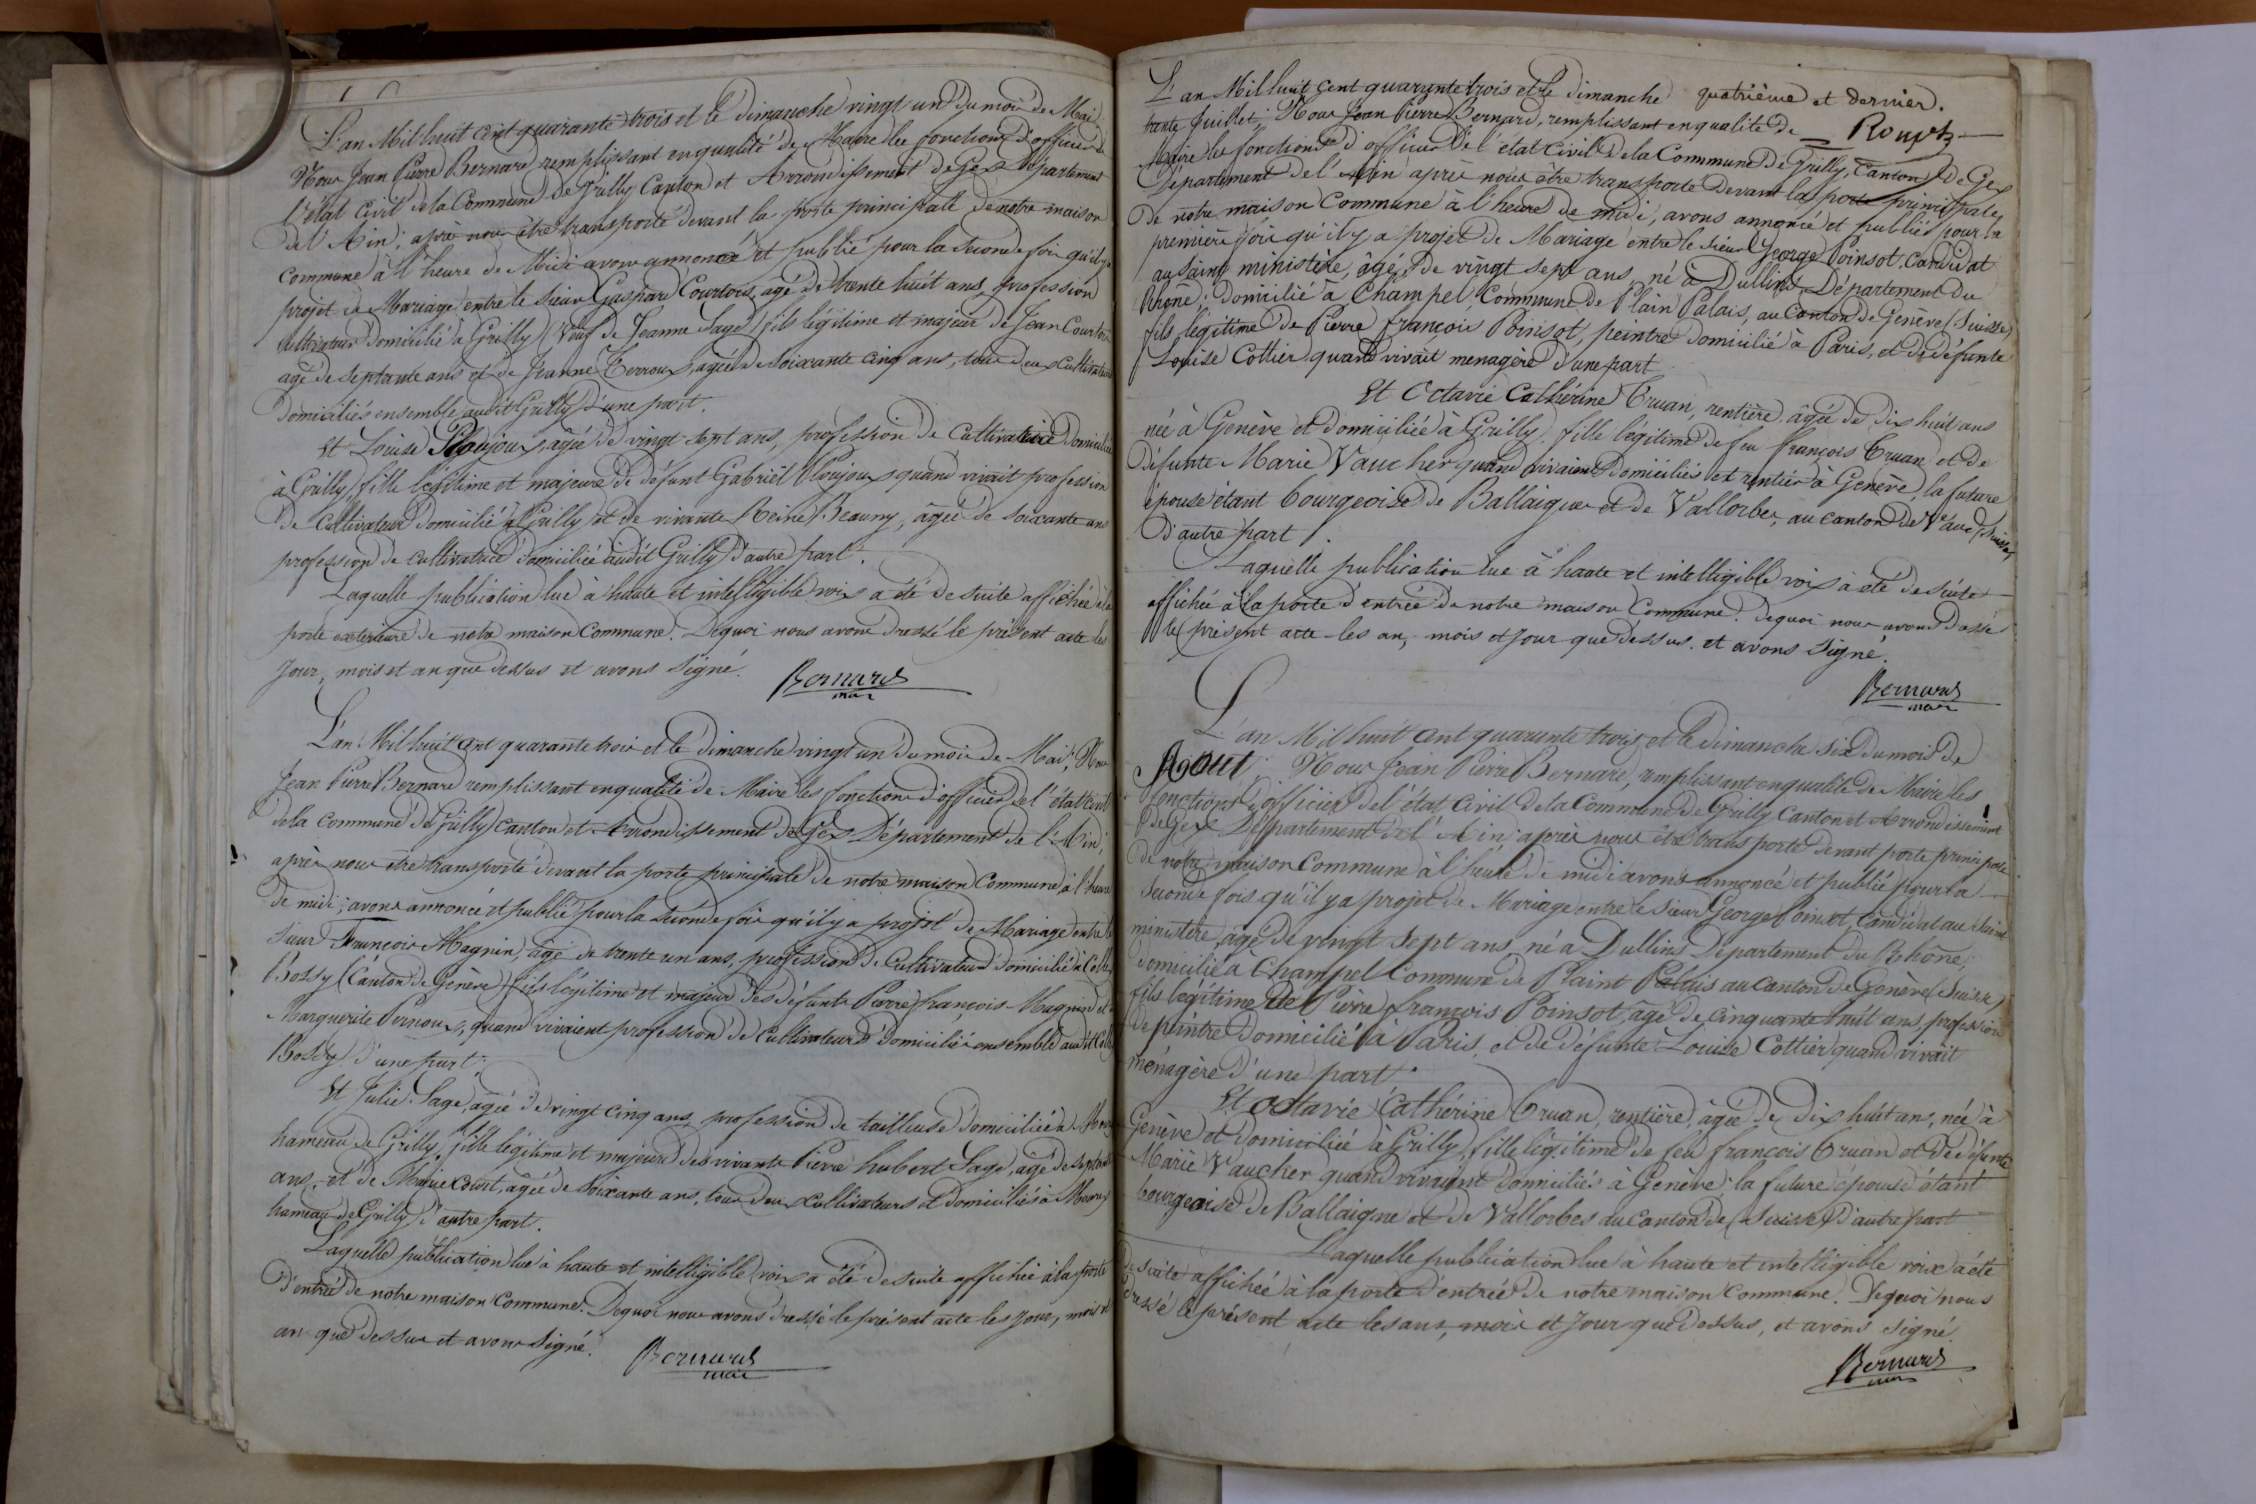 L'an Mil huit cent quarante trois et le dimanche vingt un du mois de Mai
Nous Jean Pierre Bernard remplissant en qualité de Maire les fonctions d'officier de
l'état civil de la Commune de Grilly Canton et Arrondissement de Gex Département
de l'Ain; après nous être transporté devant la porte principale de notre maison
commune à l'heure de Midi avons annoncé et publié pour la seconde fois qu'il y a
projet de Mariage entre le sieur Gaspard Courtois, agé de trente huit ans, profession
cultivateur domicilié à Grilly (Veuf de Jeanne Sage) fils légitime et majeur de Jean Courtois
agé de septante ans et de Jeanne Terroux, agée de soixante cinq ans, tous deux cultivateurs
domiciliés ensemble audit Grilly d'une part.
Et Louise Ploujoux, agée de vingt sept ans, profession de cultivatrice domiciliée
à Grilly, fille légitime et majeure de défunt Gabriel Ploujoux quand vivait profession
de cultivateur domicilié à Grilly et de vivante Reine Beauny, âgée de soixante ans
profession de cultivatrice domiciliée audit Grilly d'autre part.
Laquelle publication lue à haute et intelligible voix a été de suite affichée à la
porte exterieure de notre maison Commune. Dequoi nous avons dressé le présent acte les
Jour, mois et an que dessus et avons signé.
Bernard
mair
L'an Mil huit cent quarante trois et le dimanche vingt un du mois de Mai, Nous
Jean Pierre Bernard remplissant en qualité de Maire les fonctions d'officier de l'état civil
de la commune de Grilly canton et Arrondissement de Gex Département de l'Ain,
après nous être transporté devant la porte principale de notre maison Commune à l'heure
de midi; avons annoncé et publié pour la seconde fois qu'il y a projet de Mariage entre le
sieur François Magnin, âgé de trente un ans, profession de cultivateur domicilié à Colle
Bossy (Canton de Genève) fils légitime et majeur des défunts Pierre françois Magnin et
Marguerite Pernoux, quand vivaient profession de cultivateurs domiciliés ensemble audit Colle
Bossy d'une part;
Et Julie Sage, agée de vingt cinq ans, profession de tailleuse domiciliée à Mourex
hameau de Grilly, fille légitime et majeure des vivants Pierre hubert Sage, agé de septante
ans, et de Marie Court, agée de soixante ans, tous deux cultivateurs et domiciliés à Mourex
hameau de Grilly d'autre part.
Laquelle publication lue à haute et intelligible voix a été de suite affichée à la porte
d'entrée de notre maison Commune. Dequoi nous avons dressé le présent acte les jour, mois et
an que dessus et avons signé.
Bernard
mair
L'an Mil huit cent quarante trois et le dimanche quatrième et dernier.
trente Juillet; Nous Jean Pierre Bernard, remplissant en qualité de
Maire les fonctions d'officier de l'état civil de la Commune de Grilly, Canton de Gex
Département de l'Ain après nous être transporté devant la porte principale
de notre maison Commune à l'heure de midi, avons annoncé et publié pour la
première fois qu'il y a projet de Mariage entre le sieur George Poinsot, candidat
au saint ministère, âgé de vingt sept ans, né à Dullins Département du
Rhône; domicilié à Champel, Commune de Plain Palais, au Canton de Genève (Suisse)
fils légitime de Pierre françois Poinsot, peintre domicilié à Paris, et de défunte
Louise Cottier quand vivait menagère d'une part
Et Octavie Cathérine Truan, rentière, âgée de dix huit ans
née à Genève et domiciliée à Grilly, fille légitime de feu françois Truan et de
défunte Marie Vaucher quand vivaient domiciliés et rentiers à Genève, la future
épouse étant bourgeoise de Ballaigue et de Vallorbes, au canton de Vaud (Suisse)
d'autre part.
Laquelle publication lue à haute et intelligible voix à été de suite
affichée à la porte d'entrée de notre maison Commune. Dequoi nous avons dressé
le présent acte les an, mois et jour que dessus. et avons signé.
Bernard
mair
L'an Mil huit cent quarante trois et le dimanche six du mois de
Aout; Nous Jean Pierre Bernard, remplissant en qualité de Maire les
fonctions d'officier de l'état civil de la Commune de Grilly Canton et Arrondissement
de Gex Département de l'Ain; après nous être transporté devant porte principale
de notre maison Commune à l'heure de midi avons annoncé et publié pour la
seconde fois qu'il y a projet de Mariage entre le sieur George Poinsot, candidat au saint
ministère, agé de vingt sept ans, né à Dullins Département du Rhône;
domicilié à Champel Commune de Plaint Palais au canton de Genève (Suisse)
fils légitime de Pierre françois Poinsot, âgé de cinquante huit ans, profession
de peintre domicilié à Paris, et de défunte Louise Cottier quand vivait
ménagère d'une part.
Et octavie Cathérine Truan, rentière, âgée de dix huit ans, née à
Genève et domiciliée à Grilly, fille légitime de feu françois Truan et de défunte
Marie Vaucher quand vivaient domiciliés à Genève; la future épouse étant
bourgeoise de Ballaigne et de Vallorbes au canton de (Suisse) d'autre part
Laquelle publication lue à haute et intelligible voix a été
de suite affichée à la porte d'entrée de notre maison Commune. Dequoi nous
dressé le présent acte les ans, mois et jour que dessus, et avons signé.
Bernard
mair